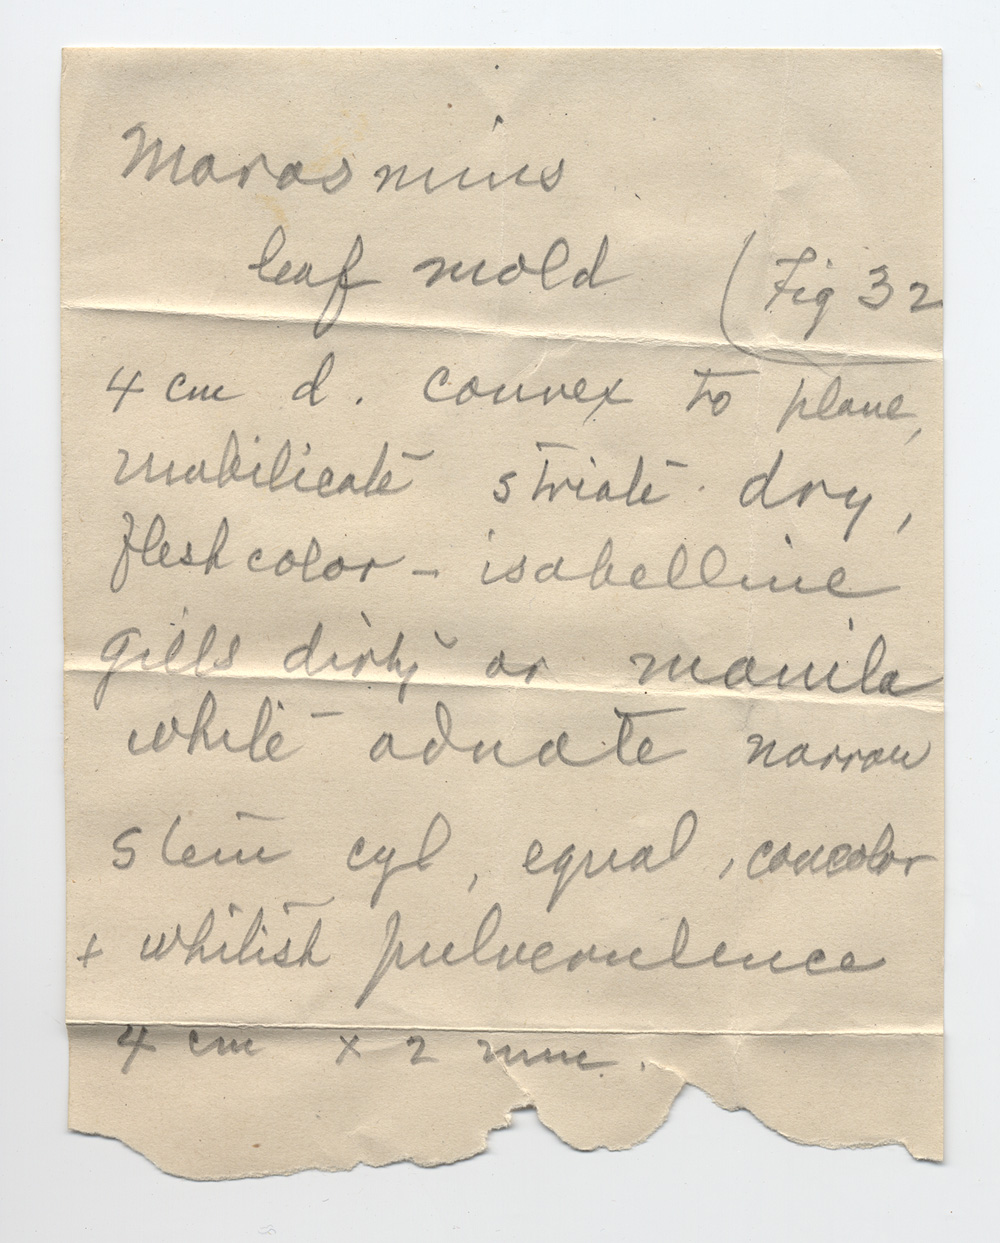 Marasmius
leaf mold (Fig 32
4 cm d. convex to plane,
umbilicate striate. dry,
flesh color - isabelline
gills dirty or manila
white adnate narrow
stem cyl, equal, concolor
+ whitish pulverulence
4 cm x 2 mm.